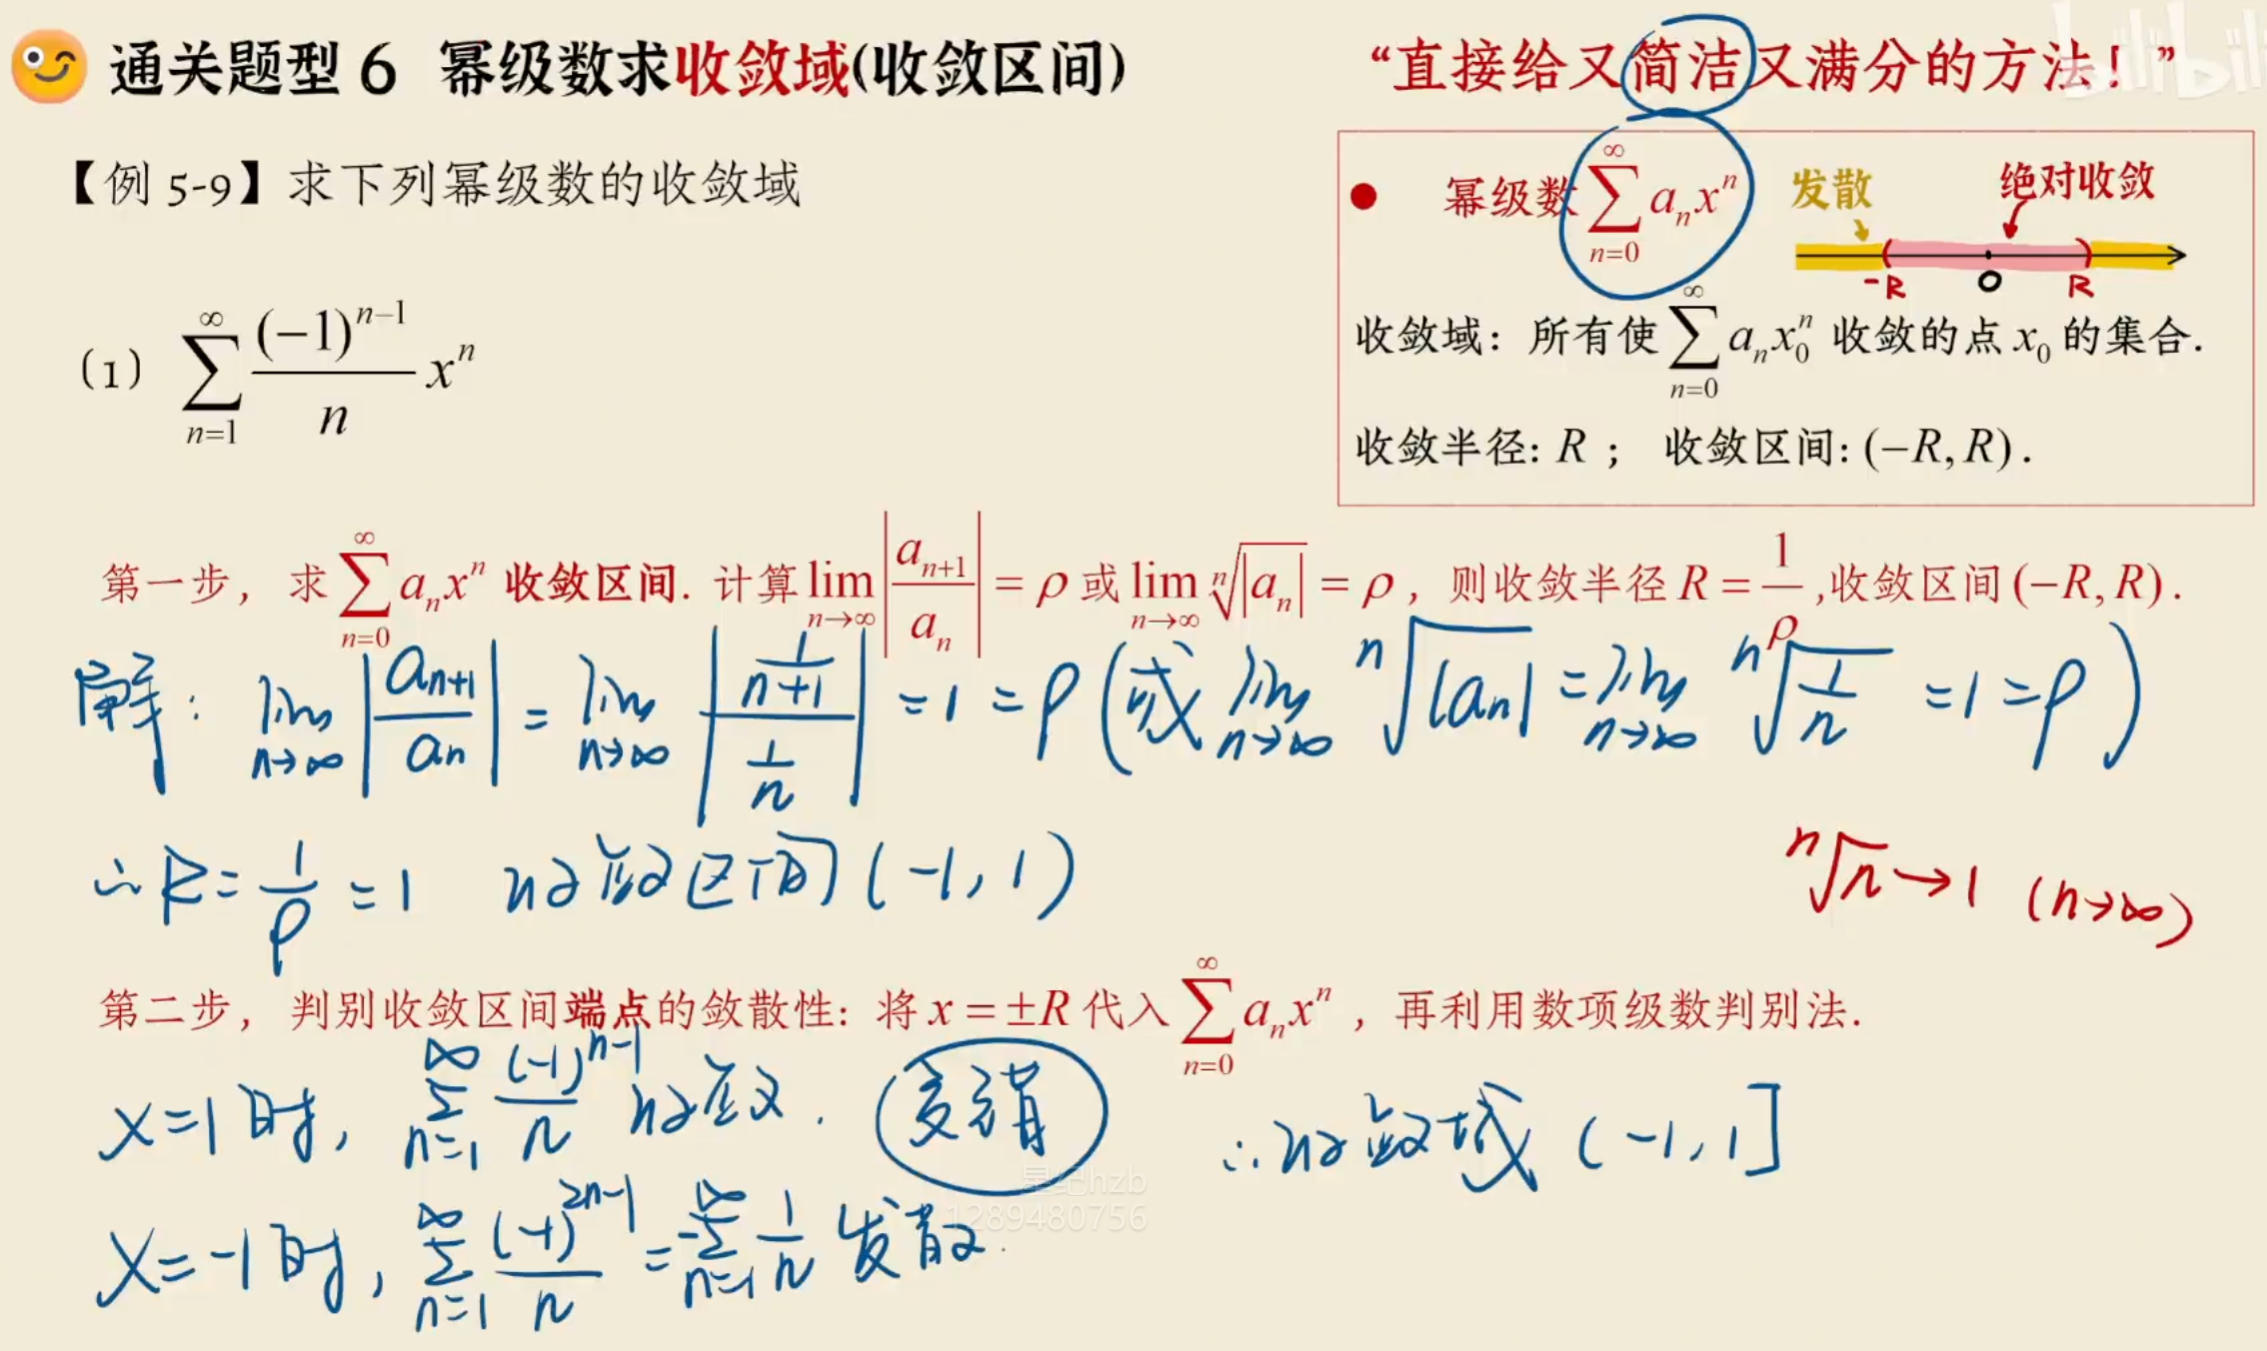 通关题型 6 幂级数求收敛域(收敛区间)
“直接给又简洁又满分的方法！”
bilibili
【例 5-9】求下列幂级数的收敛域
(1) $\sum_{n=1}^{\infty} \frac{(-1)^{n-1}}{n} x^n$
● 幂级数 $\sum_{n=0}^{\infty} a_n x^n$
发散 绝对收敛
-R O R
收敛域：所有使 $\sum_{n=0}^{\infty} a_n x_0^n$ 收敛的点 $x_0$ 的集合.
收敛半径: R ； 收敛区间: (−R, R) .
第一步，求 $\sum_{n=0}^{\infty} a_n x^n$ 收敛区间. 计算 $\lim_{n\to\infty} \left|\frac{a_{n+1}}{a_n}\right| = \rho$ 或 $\lim_{n\to\infty} \sqrt[n]{|a_n|} = \rho$ ，则收敛半径 $R = \frac{1}{\rho}$ ,收敛区间 (−R, R) .
解: $\lim_{n\to\infty} \left|\frac{a_{n+1}}{a_n}\right| = \lim_{n\to\infty} \left|\frac{\frac{1}{n+1}}{\frac{1}{n}}\right| = 1 = \rho$ (或 $\lim_{n\to\infty} \sqrt[n]{|a_n|} = \lim_{n\to\infty} \sqrt[n]{\frac{1}{n}} = 1 = \rho$)
∴ $R = \frac{1}{\rho} = 1$ 收敛区间 (-1, 1)
$\sqrt[n]{n} \to 1$ (n→∞)
第二步，判别收敛区间端点的敛散性：将 $x = \pm R$ 代入 $\sum_{n=0}^{\infty} a_n x^n$ ，再利用数项级数判别法.
x=1时, $\sum_{n=1}^{\infty} \frac{(-1)^{n-1}}{n}$ 收敛. 交错
∴ 收敛域 (-1, 1]
x=-1时, $\sum_{n=1}^{\infty} \frac{(-1)^{2n-1}}{n} = -\sum_{n=1}^{\infty} \frac{1}{n}$ 发散.
星纪hzb
1289480756